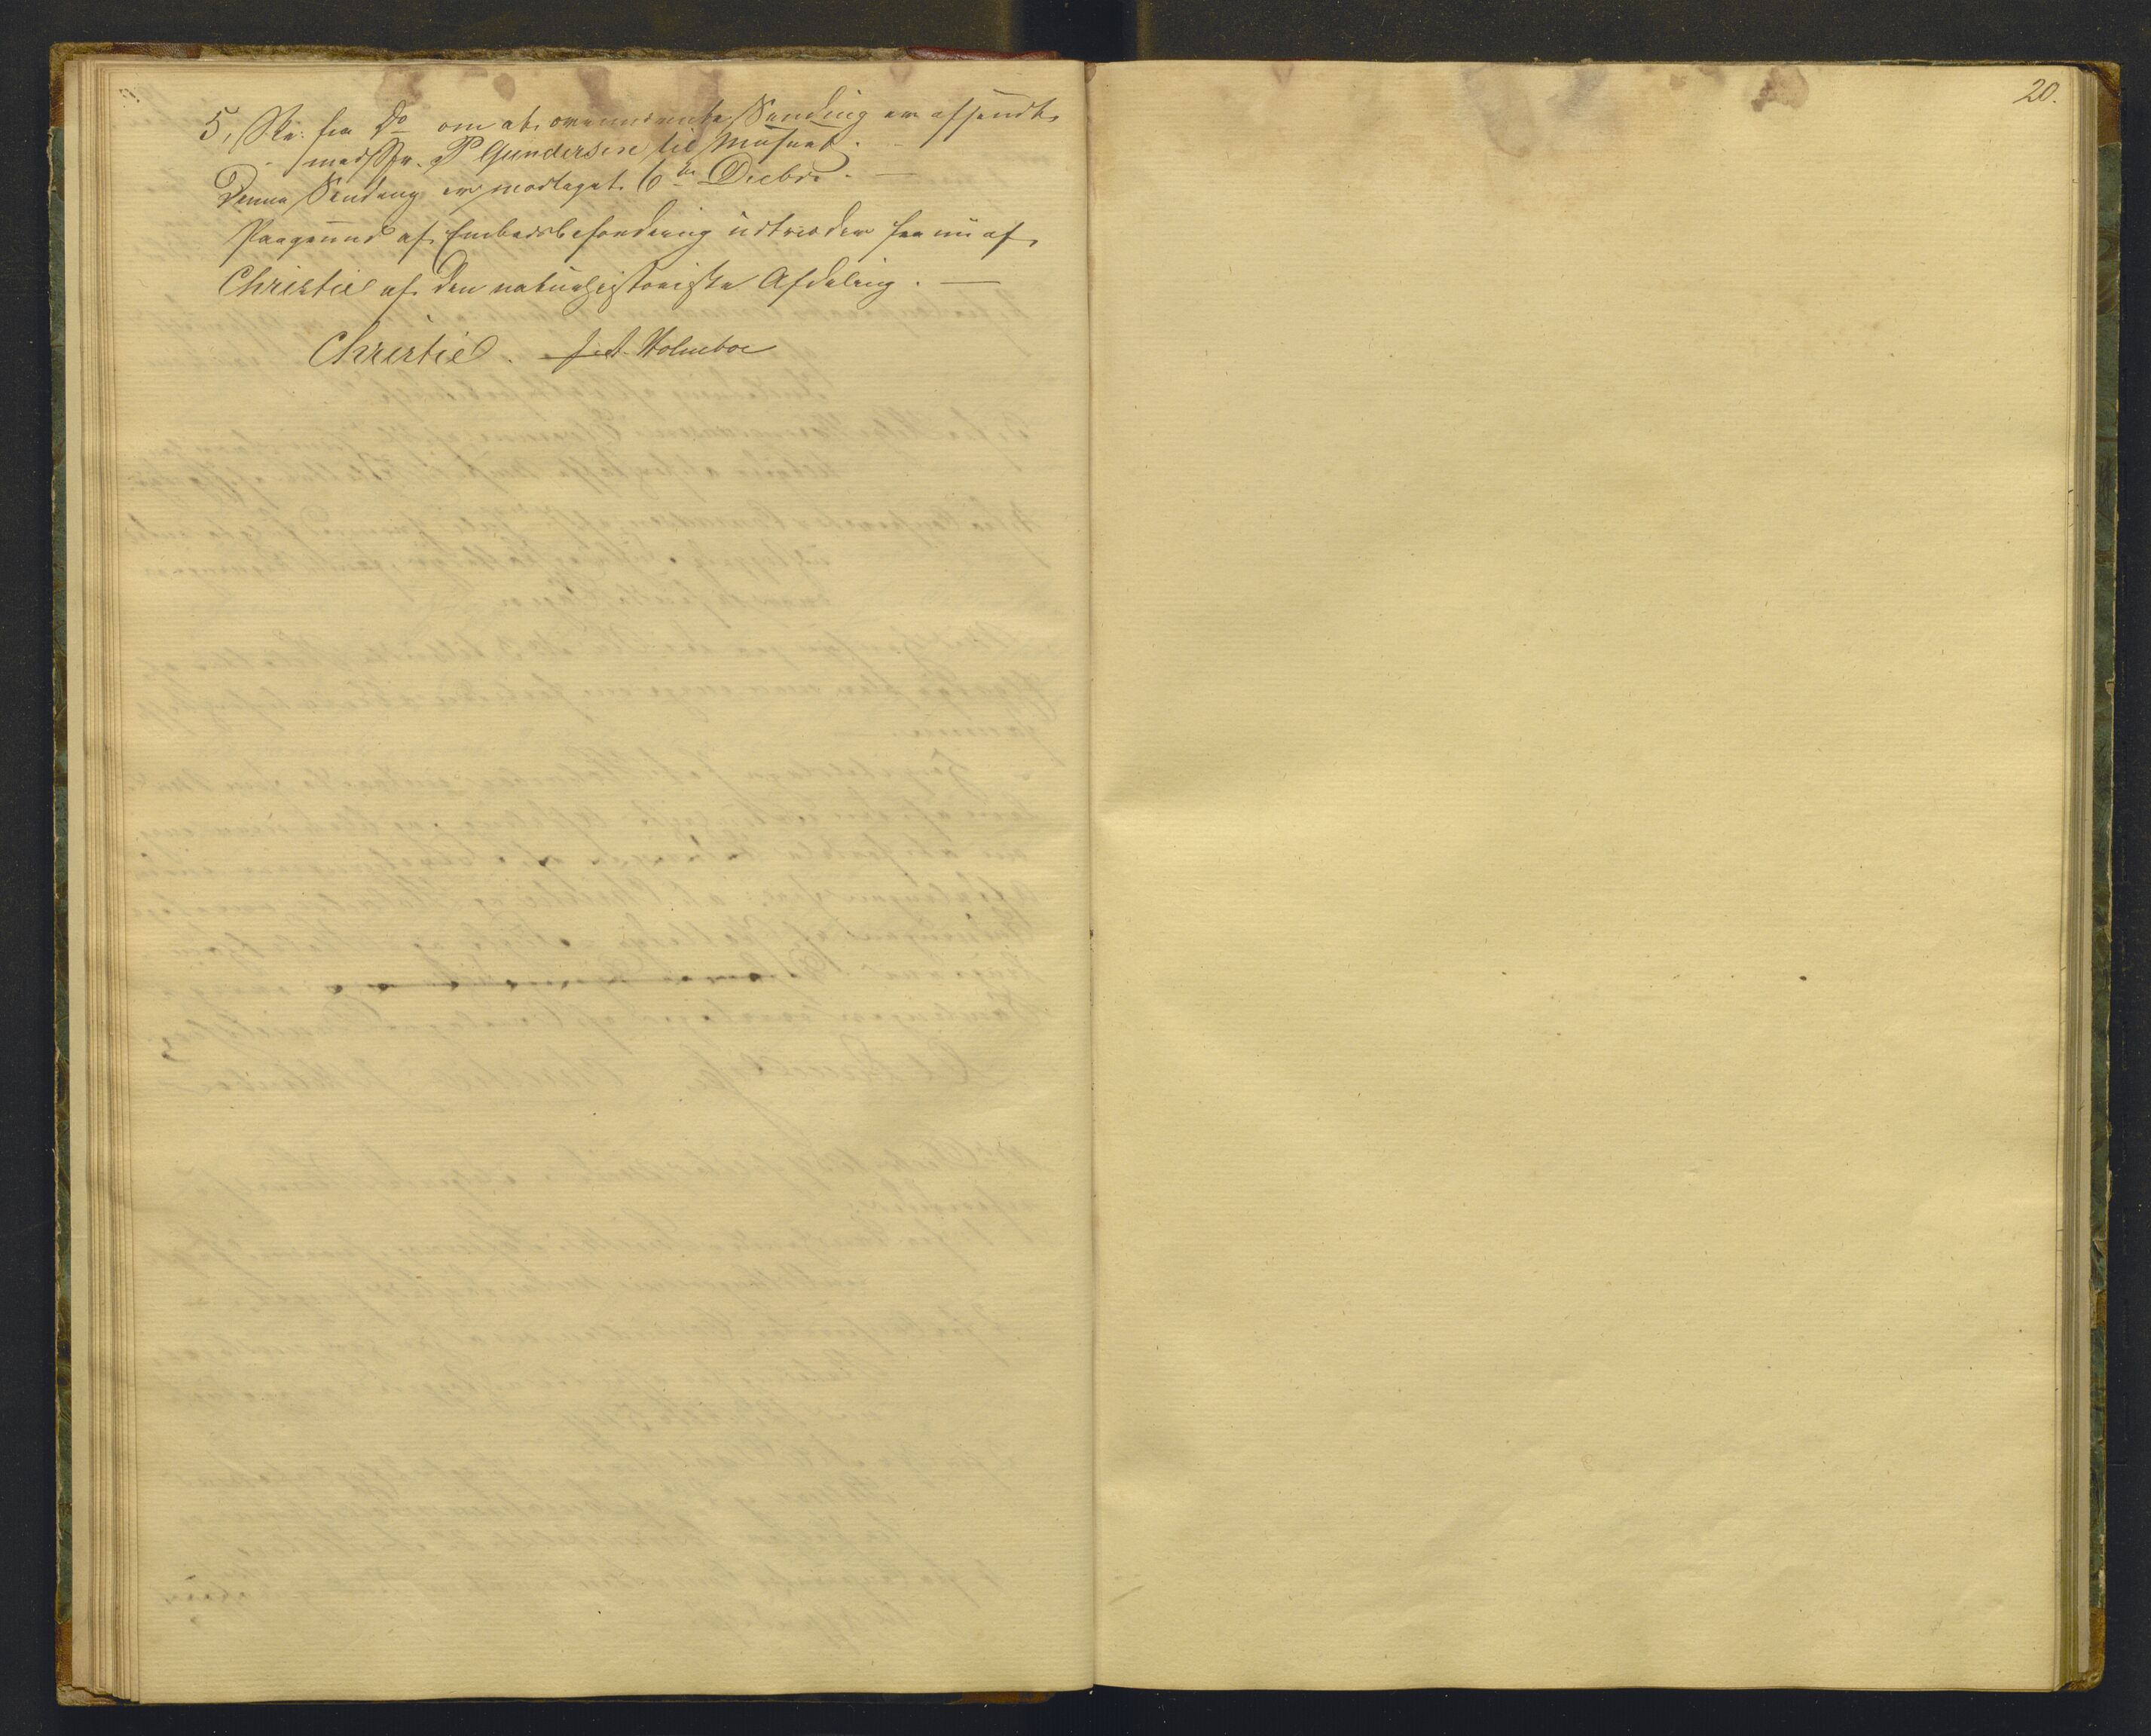 20.
5, Skr: fra Do om at ovennævnte Sending er afsendt
med Skr. P Gundersen til Museet. –
Denne Sending er modtaget 6te Decbr. –
Paagrund af Embedsbefordring udtræder fra nu af
Christie af den naturhistoriske Afdeling. —
Christie. Holmboe